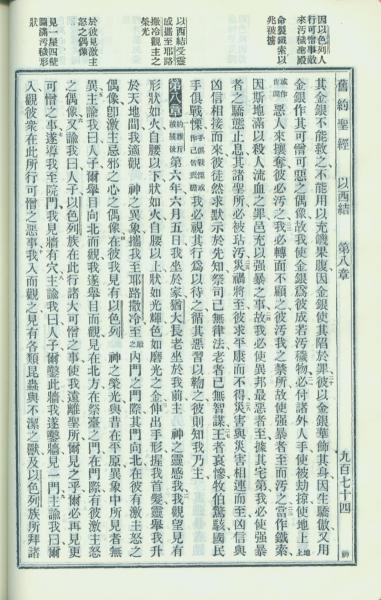 舊約聖經　以西結　第八章　九百七十四
因以色列人
行可憎事敵
來污穢聖堂
命製鐵索以
兆被擄
以西結受靈
感攜至耶路
撒冷觀主之
榮光
於彼見激主
怒之偶像
見一屋四壁
圖滿污穢形
狀
其金銀不能救之不能用以充饑果腹因金銀使其陷於罪彼以金銀華飾其身因生驕傲又用
金銀作其可憎可惡之偶像故我使金銀爲彼成若污穢物必付諸外人手使被劫掠使地上
惡人來攘奪必污之我必轉面不顧之彼污我之禁所故使强暴者至而污之當作鐵索
因斯地滿以殺人流血之罪邑充以强暴之事故我必使異邦最惡者至據其宅第我必使强暴
者之驕恣止息其諸聖所必被玷污災禍將至彼求平康而不得災害與災害相連而至凶信與
凶信相接而來彼徒然求默示於先知祭司已無律法老者已無智謀王者哀慘牧伯驚駭國民
手俱戰慄我必視其行爲以待之循其惡習以鞫之彼則知我乃主
第八章 第六年六月五日我坐於家猶大長老坐於我前主　神之靈感我我觀望見有
形狀如火自腰以下狀如火自腰以上狀如光耀色如磨光之金伸出手形握我首髮靈舉我升
於天地間我適觀　神之異象攜我至耶路撒冷至內門之門際其門向北在彼有激主怒之
偶像卽激主忌邪之心之偶像在彼我見有以色列　神之榮光與昔在平原異象中所見者無
異主諭我曰人子爾舉目向北而觀我遂舉目而觀見在北方在祭臺之門在門際有彼激主怒
之偶像又諭我曰人子以色列族在此行諸大可憎之事使我遠離聖所爾見之乎爾必再見更
可憎之事遂導我至院門我見牆有穴主諭我曰人子爾鑿此牆我遂鑿牆見一門主諭我曰爾
入觀彼衆在此所行可憎之惡事我入而觀之見有各類昆蟲與不潔之獸及以色列族所拜諸